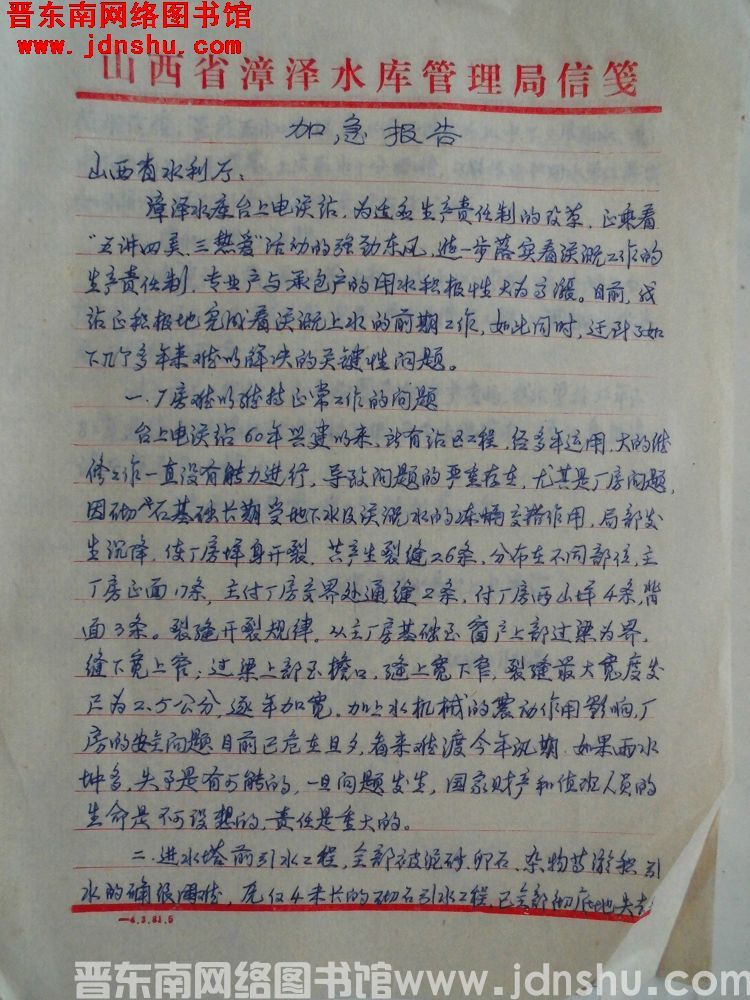 晋东南网络图书馆
www.jdnshu.com
山西省漳泽水库管理局信笺
加急报告
山西省水利厅:
漳泽水库台上电灌站,为适应生产责任制的改革,正乘着
"五讲四美、三热爱"活动的强劲东风,进一步落实着灌溉工作的
生产责任制,专业户与承包户的用水积极性大为高涨。目前,我
站正积极地完成着灌溉上水的前期工作,如此同时,还对了如
下几个多年来难以解决的关键性问题。
一.厂房难以维持正常工作的问题
台上电灌站60年兴建以来,所有站区工程,经多年运用,大的维
修工作一直没有能力进行,导致问题的严重存在,尤其是厂房问题,
因砌石基础长期受地下水及灌溉水的冻熵交替作用,局部发
生沉降,使厂房墙身开裂,共产生裂缝26条,分布在不同部位,主
厂房正面17条,主付厂房交界处通缝2条,付厂房两山墙4条,背
面3条。裂缝开裂规律,从主厂房基础至窗户上部过梁为界,
缝下宽上窄;过梁上部至檐口,缝上宽下窄,裂缝最大宽度发
展为2.5公分,逐年加宽,加上水机械的震动作用影响,厂
房的安全问题目前已危在旦夕,看来难渡今年汛期,如果雨水
坤多,失事是有可能的,一旦问题发生,国家财产和值班人员的
生命是不可设想的,责任是重大的。
二.进水塔前引水工程,全部被泥砂、卵石、杂物等淤积,引
水的确很困难,尾仅4米长的砌石引水工程,已全部彻底地失去
—4.3.81.5
晋东南网络图书馆 www.jdnshu.com